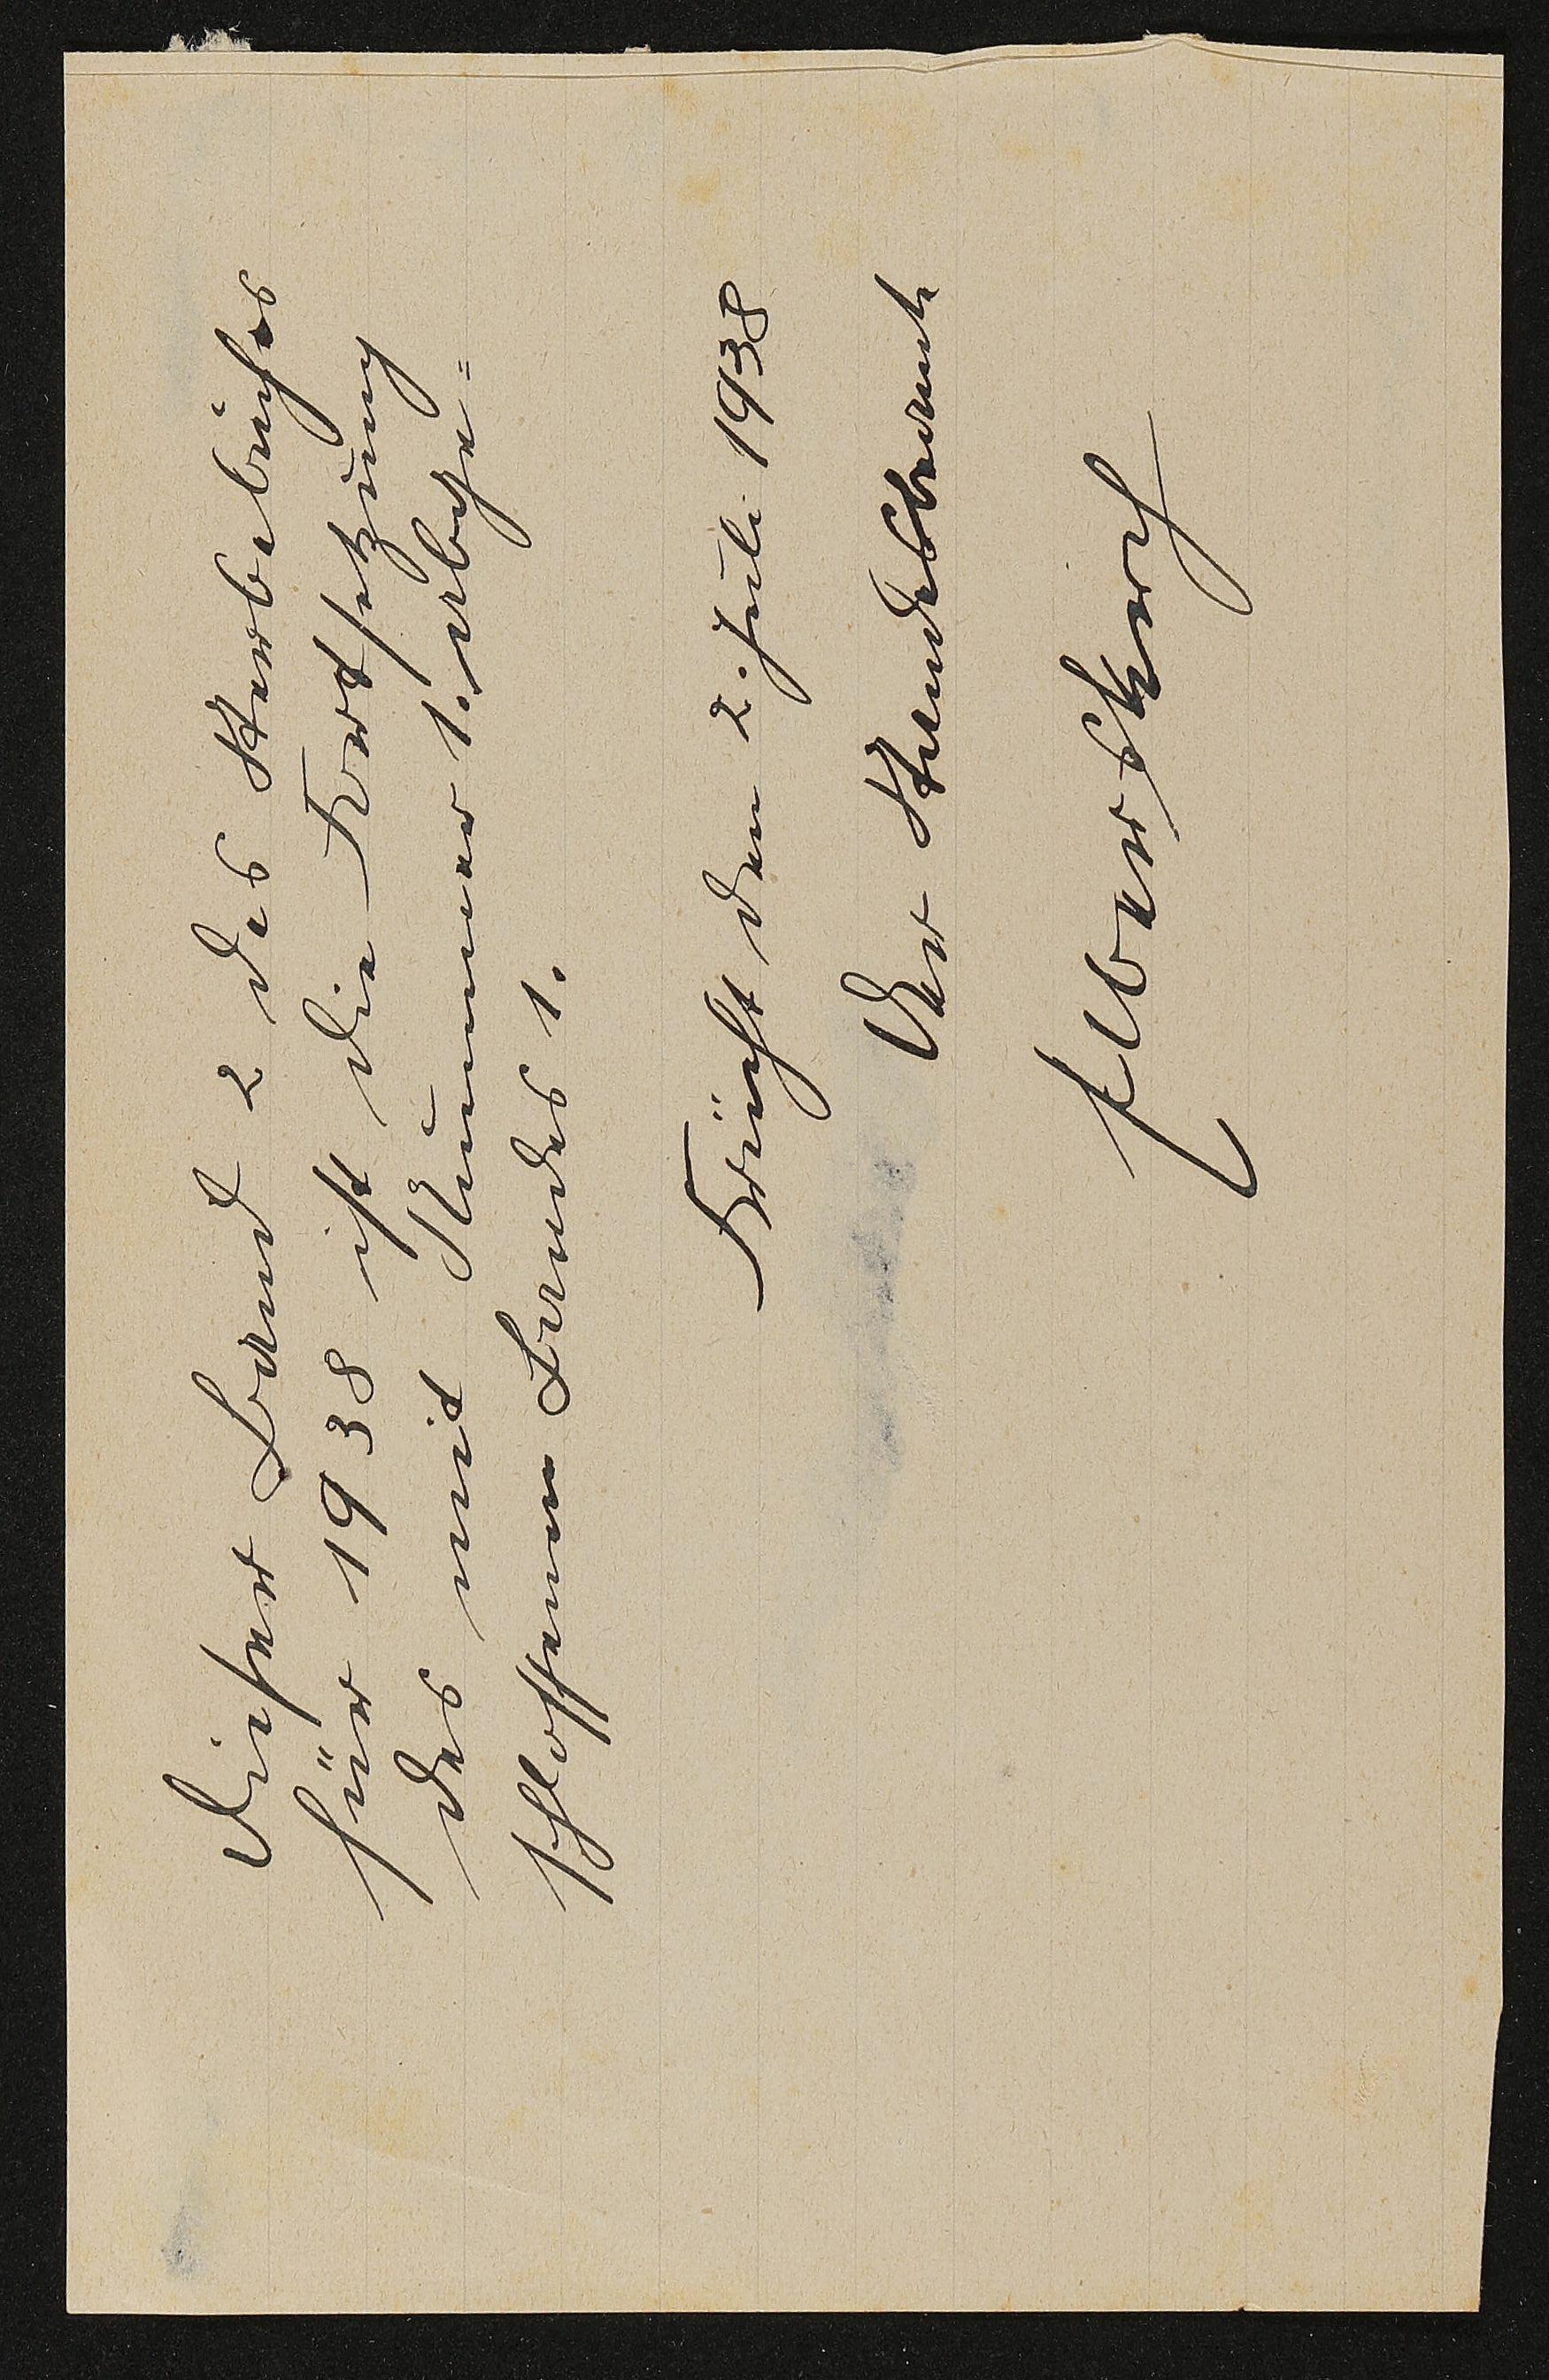 Dieser Band 2 des Sterbebuches
für 1938 ist die Fortsetzung
des mit Nummer 1. abge=
schlossenen Bandes 1.
Frücht den 2. Juli 1938
Der Standesbeamte